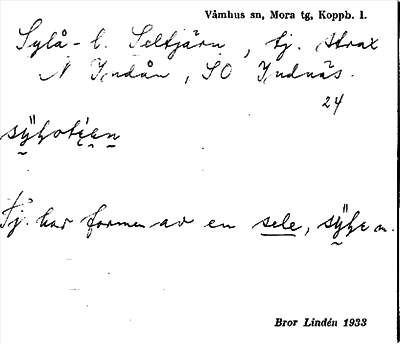 Våmhus sn, Mora tg, Koppb. l.
Sylå- l. Seltjärn, tj. strax
N Indån, SO Indnäs.
24
Tj. har formen av en sele, m.
Bror Lindén 1933